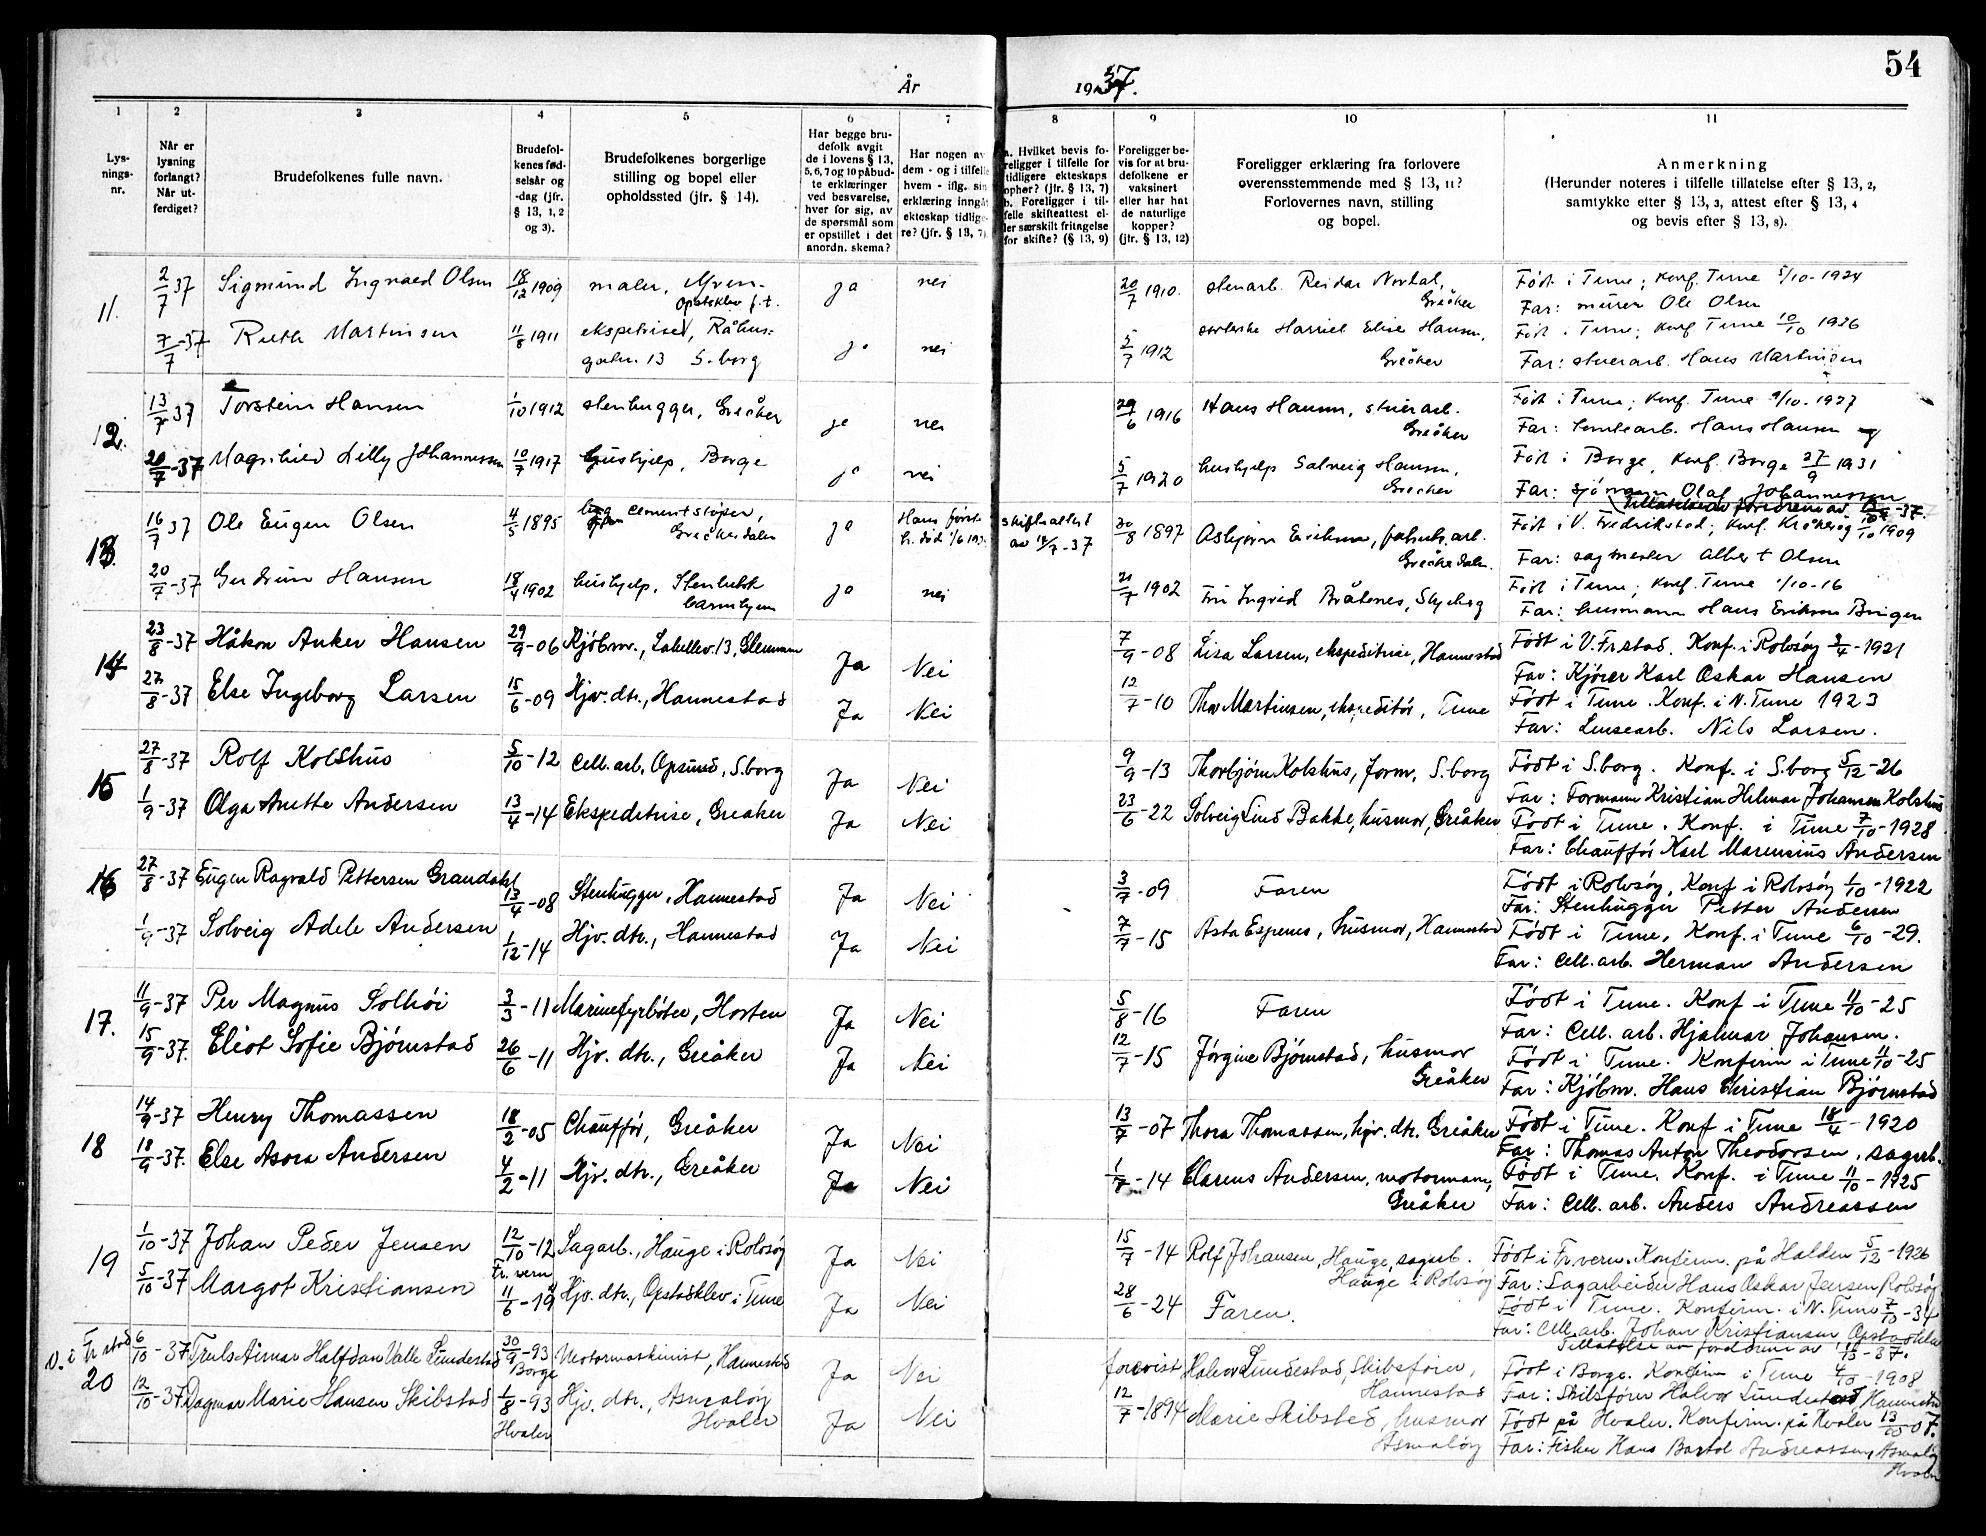 54
År 1937.
1 2 3 4 5 6 7 8 9 10 11
Lysningsnr.
Når er lysning forlangt? Når utferdiget?
Brudefolkenes fulle navn.
Brudefolkenes fødselsår og -dag (jfr. § 13, 1, 2 og 3).
Brudefolkenes borgerlige stilling og bopel eller opholdssted (jfr. § 14).
Har begge brudefolk avgit de i lovens § 13, 5, 6, 7 og 10 påbudte erklæringer ved besvarelse, hver for sig, av de spørsmål som er opstillet i det anordn. skema?
Har nogen av dem - og i tilfelle hvem - iflg. sin erklæring inngåt ekteskap tidligere? (jfr. § 13, 7).
a. Hvilket bevis foreligger i tilfelle for tidligere ekteskaps ophør? (jfr. § 13, 7) b. Foreligger i tilfelle skifteattest eller særskilt fritagelse for skifte? (§ 13, 9)
Foreligger bevis for at brudefolkene er vaksinert eller har hat de naturlige kopper? (jfr. § 13, 12)
Foreligger erklæring fra forlovere overensstemmende med § 13, 11? Forlovernes navn, stilling og bopel.
Anmerkning (Herunder noteres i tilfelle tillatelse efter § 13, 2, samtykke efter § 13, 3, attest efter § 13, 4 og bevis efter § 13, 8).
11. 2/7 37 Sigmund Ingvald Olsen 18/12 1909 maler, Opstsklev f.t. ja nei 20/7 1910. stenarb. Reidar Nordal, Greåker Født i Tune; Konf. Tune 5/10-1924
Far: murer Ole Olsen
7/7-37 Ruth Martinsen 11/8 1911 ekspetrise, Råhusgaten 13 S.borg ja nei 5/7 1912 Harriet Elise Hansen, Greåker Født i Tune; Konf. Tune 10/10 1926
Far: stuerarb. Hans Martinsen
12. 13/7 37 Torstein Hansen 1/10 1912 stenhugger, Greåker ja nei 29/6 1916 Hans Hansen, stuerarb. Greåker Født i Tune; Konf. Tune 9/10-1927
Far: Hans Hansen
20/7-37 Magnhild Lilly Johannessen 10/7 1917 hushjelp, Borge ja nei 5/7 1920 hushjelp Solveig Hansen, Greåker Født i Borge, Konf. Borge 27/9 1931
Far: sjømann Olaf Johannessen
13. 16/7 37 Ole Eugen Olsen 4/5 1895 cementstøper, Greåkerdalen ja Hans første h. død 1/6 skifteattest av 14/7-37 30/8 1897 Asbjørn Eriksen, fabrikarb. Greåkerdalen. Født i V. Fredrikstad; Konf. Kråkerøy 10/10 1909
Far: sagmester Albert Olsen
20/7-37 Gudrun Hansen 18/4 1902 hushjelp, Stenbekk barnehjem ja nei 21/7 1902 Fru Ingrid Bråtenes, Skjeberg Født i Tune; Konf. Tune 1/10-16
Far: husmann Hans Eriksen Bingen
14 23/8-37 Håkon Anker Hansen 29/9-06 Kjöbm., Labellev. 13, Glemmen Ja Nei 7/9-08 Lisa Larsen, ekspeditrise, Hannestad Födt i V. Fr.stad. Konf. i Rolvsöy 3/4-1921
Far: Kjörer Karl Oskar Hansen
27/8-37 Else Ingeborg Larsen 15/6-09 Hjv. dtr., Hannestad Ja Nei 12/7-10 Thor Martinsen, ekspeditör, Tune Födt i Tune. Konf. i N. Tune 1923
Far: Lensearb. Nils Larsen.
15 27/8-37 Rolf Kolshus 5/10-12 Cell. arb, Opsund, S.borg Ja Nei 9/9-13 Thorbjörn Kolshus, form, S.borg Födt i S.borg. Konf. i S.borg 5/12-26
Far: Formann Kristian Hilmar Johansen Kolshus
1/9-37 Olga Anette Andersen 13/4-14 Ekspeditrise, Greåker Ja Nei 23/6-22 Solveig Lind Bakke, husmor, Greåker Födt i Tune. Konf. i Tune 7/10-1928
Far: Chaufför Karl Marensius Andersen
16 27/8-37 Eugen Ragvald Pettersen Grandahl 13/4-08 Stenhugger, Hannestad Ja Nei 3/7-09 Faren Födt i Rolvsöy, Konf i Rolvsöy 1/10-1922
Far: Stenhugger Petter Andersen
1/9-37 Solveig Adele Andersen 1/12-14 Hjv. dtr., Hannestad Ja Nei 7/7-15 Asta Espenes, husmor, Hannestad Födt i Tune, Konf. i Tune 6/10-29.
Far: Cell. arb. Herman Andersen
17. 11/9-37 Per Magnus Solhöi 3/3-11 Marinefyrböter, Horten Ja Nei 5/8-16 Faren Födt i Tune. Konf i Tune 11/10-25
Far: Cell. arb. Hjalmar Johansen.
15/9-37. Eliot Sofie Björnstad 26/6-11 Hjv. dtr., Greåker Ja Nei 12/7-15 Jörgine Björnstad, husmor Greåker Födt i Tune. Konfirm i Tune 11/10-25
Far: Kjöbm. Hans Christian Björnstad
18 14/9-37 Henry Thomassen 18/2-05 Chaufför, Greåker Ja Nei 13/7-07 Thora Thomassen, hjv. dtr. Greåker Födt i Tune. Konf i Tune 18/4-1920
Far: Thomas Anton Theodorsen, sagarb.
18/9-37. Else Asora Andersen 4/2-11 Hjv. dtr., Greåker Ja Nei 1/7-14 Clarens Andersen, motormann, Greåker Födt i Tune. Konf. i Tune 11/10-1925
Far: Cell. arb. Anders Andreassen
19 1/10-37 Johan Peder Jensen 12/10-12 Fr. vern Sagarb., Hauge i Rolvsöy Ja Nei 15/7-14 Rolf Johansen, Hauge, sagarb. Hauge i Rolvsöy Födt i Fr. vern. Konfirm. på Halden 5/12-1926
Far: Sagarbeider Hans Oskar Jensen Rolvsöy
5/10-37 Margot Kristiansen 11/6-19 Hjv. dtr., Opstadklev i Tune Ja Nei 28/6-24 Faren. Födt i Tune. Konfirm. i N. Tune 7/10-34
Far: Cell. arb. Johan Kristiansen, Opstadklev
V. i Fr.stad
20 6/10-37 Truls Aimar Halfdan Valle Lundestad 30/9-93 Borge Motormaskinist, Hannestad Ja Nei forevist Halvor Lundestad, Skibsförer, Hannestad Tillatelse av fordrene av 11/13-37.
Födt i Borge. Konfirm i Tune 4/10-1908
Far: Skibsförer Halvor Lundestad, Hannestad
12/10-37 Dagmar Marie Hansen Skibstad 1/8-93 Hvaler Hjv. dtr., Asmalöy Hvaler Ja Nei 12/7-1894 Marie Skibsted, husmor Asmalöy Födt på Hvaler. Konfirm. på Hvaler 13/10 07.
Far: Fisker Hans Bartol Andreassen, Asmalöy Hvaler